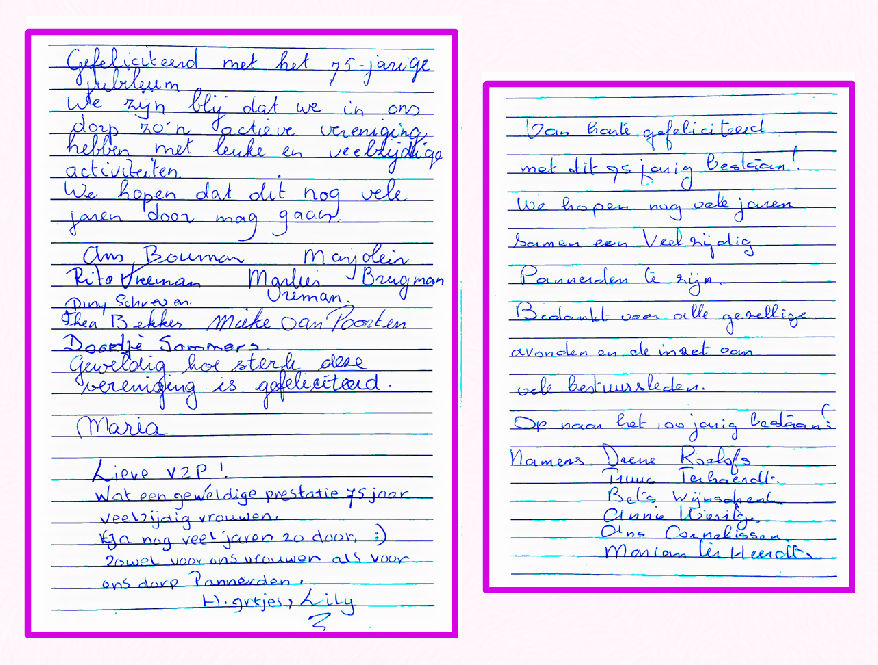 Gefeliciteerd met het 75-jarige
jubileum
We zijn blij dat we in ons
dorp zo'n actieve vereniging
hebben met leuke en veelzijdige
activiteiten.
We hopen dat dit nog vele
jaren door mag gaan.
Ans Bouman Marjolein
Rita Vreeman Marlies Brugman
Diny Schreven. Vreman.
Thea Bekker Mieke van Pooten
Doortje Sommers.
Geweldig hoe sterk deze
vereniging is gefeliciteerd.
Maria
Lieve VZP!
Wat een geweldige prestatie 75 jaar
veelzijdig vrouwen.
Ga nog veel jaren zo door. :)
Zowel voor ons vrouwen als voor
ons dorp Pannerden.
H. grtjes, Lily
Van harte gefeliciteerd
met dit 75 jarig bestaan!
We hopen nog vele jaren
samen een Veelzijdig
Pannerden te zijn.
Bedankt voor alle gezellige
avonden en de inzet van
vele bestuursleden.
Op naar het 100 jarig bestaan!
Namens Roelofs
Truus
Bets
Annie
Ans Cornelissen
Mariam ter Heerdt.